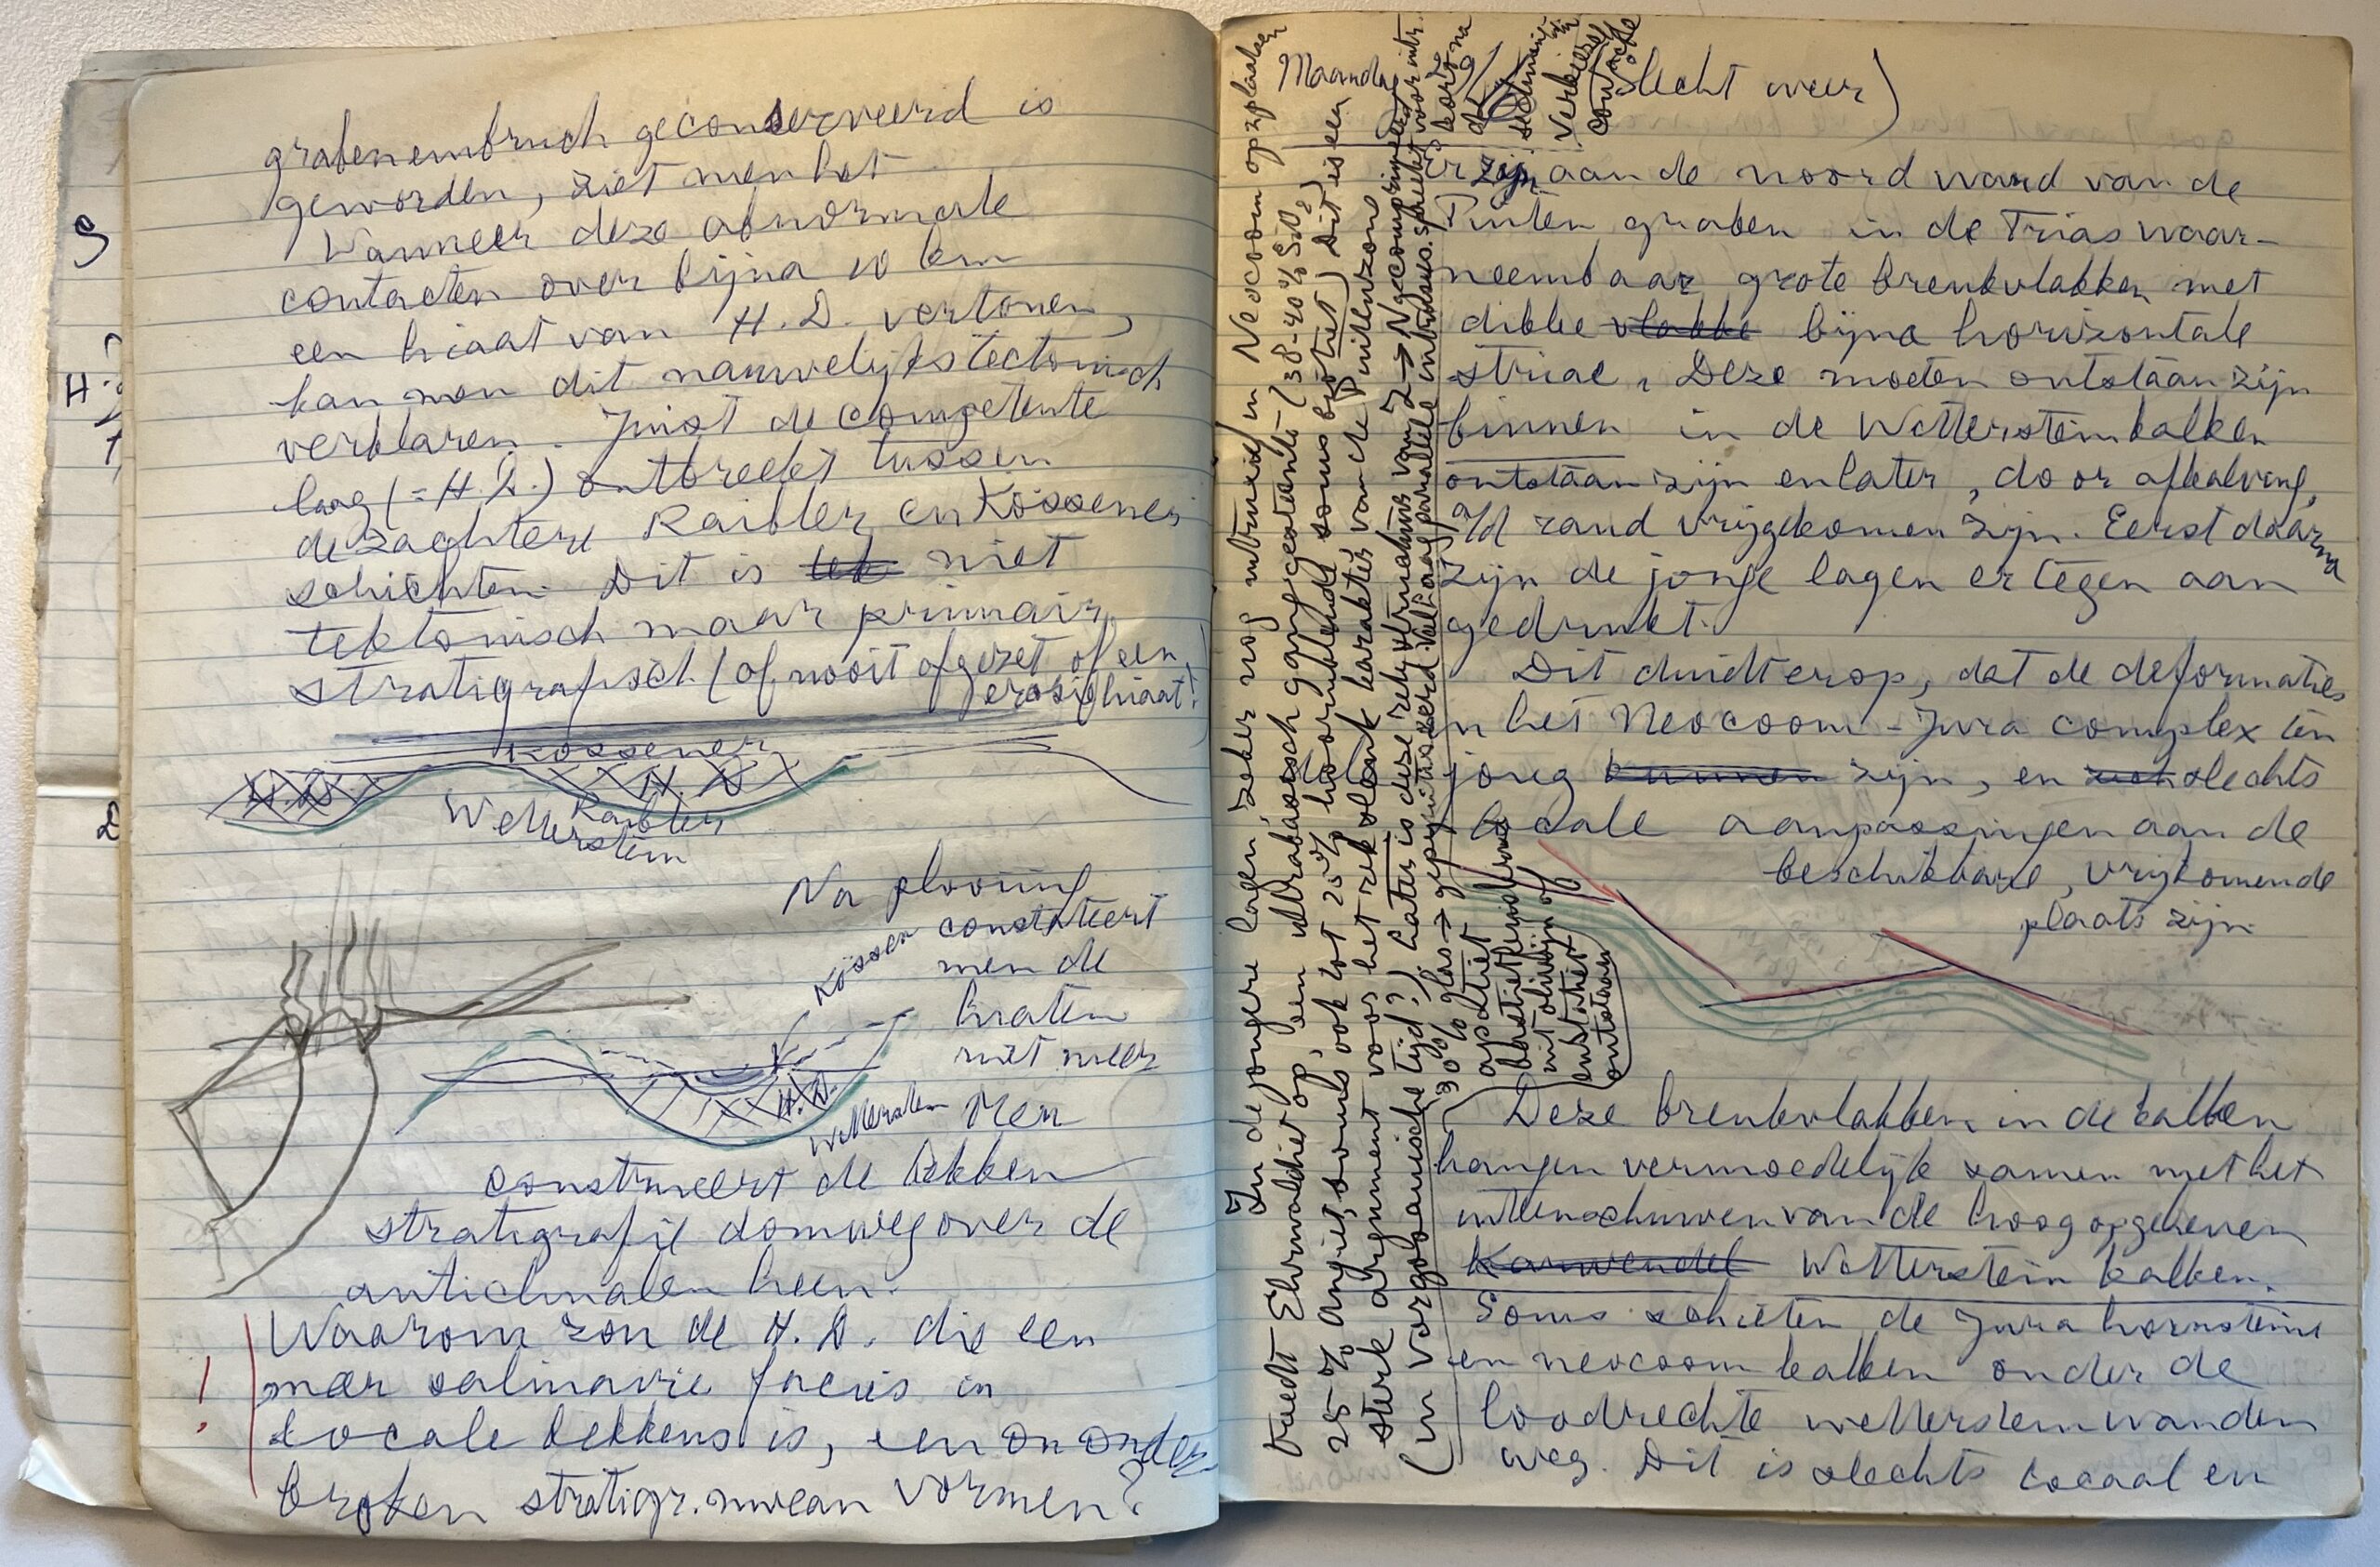 grabeneinbruch geconserveerd is
geworden, ziet men het
Wanneer deze abnormale
contacten over bijna 10 km
een hiaat van H.D. vertonen,
kan men dit nauwelijks tectonisch
verklaren. Juist de competente
laag (= H.D.) ontbreekt tussen
de zachtere Raibler en Kössener
schichten. Dit is niet
tektonisch maar primair
stratigrafisch (of nooit afgezet of een
erosiehiaat!
Kössener
H.D. H.D.
Raibler
Wetterstein
Na plooiing
constateert
men de
hiaten
niet meer
Kössen
H.D.
Wetterstein
Men
construeert de bekken
stratigrafie domweg over de
anticlinalen heen.
Waarom zou de H.D. die een
meer salinaire facies in
locale bekkens is, een ononder
broken stratigr. niveau vormen?
!
S
H
D
Maandag
(slecht weer)
Er zijn aan de noord wand van de
Puiten graben in de Trias waar-
neembaar grote breukvlakken met
dikke vlakke bijna horizontale
striae. Deze moeten ontstaan zijn
binnen in de Wettersteinkalken
ontstaan zijn en later, door afkalving,
v/d rand vrijgekomen zijn. Eerst daarna
zijn de jonge lagen er tegen aan
gedrukt.
Dit duidt erop, dat de deformaties
in het Neocoom-Jura complex
jong zijn, en slechts
locale aanpassingen aan de
beschikbare, vrijkomende
plaats zijn.
Deze breukvlakken in de kalken
hangen vermoedelijk samen met het
uiteenschuiven van de hoog opgeheven
Karwendel Wetterstein kalken.
Soms schieten de Jura hornsteine
en neocoom kalken onder de
loodrechte wettersteinwanden
weg. Dit is slechts locaal en
In de jongere lagen, zeker nog intrusief in Neocoom op plaatsen
treedt Ehrwaldiet op, een ultrabasisch ganggesteente (38-40% SiO2)
25% augiet, soms ook tot 25% hoornblende soms biotiet) Dit is een
sterk argument voor het rek karakter van de Puitenzone
(in voorgosauische tijd?) Later is deze rek vernauwing
30% glas →
apatiet
uit olivijn of
enstatiet
ontstaan